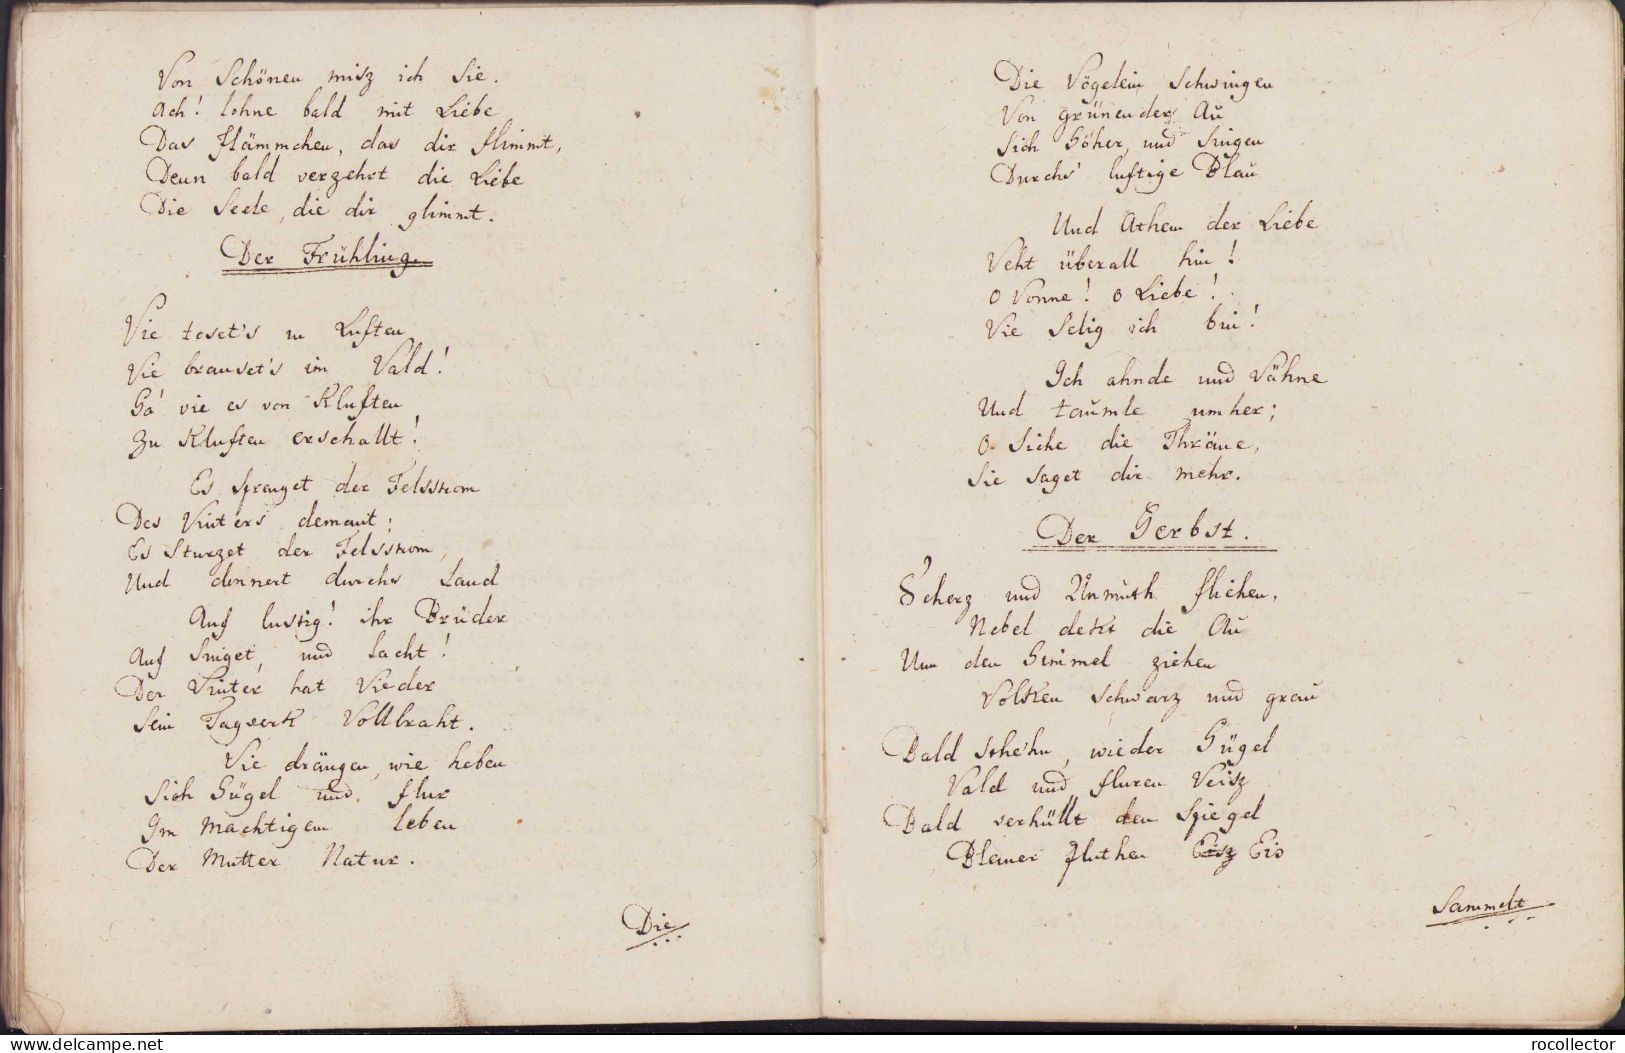 Von Schönen misz ich Sie.
Ach! lohne bald mit Liebe
Das flämmchen, das dir flimmt,
Denn bald verzehrt die Liebe
Die Seele, die dir glimmt.
Der Frühling.
Vie toset's in Luften
Vie brauset's im Vald!
Ha' vie es von Kluften
Zu Kluften erschallt!
Es sprenget der Felsstrom
Des Vinters demant;
Es Sturzet der Felsstrom,
Und donnert durchs Land
Auf lustig! ihr Brüder
Auf Singet, und Lacht!
Der Vinter hat Vieder
Sein Tagverk Vollbraht.
Vie drängen, wie heben
Sich Hügel und flur
Im Machtigem Leben
Der Mutter Natur.
Die
Die Vögelein Schwingen
Von grünender Au
Sich Höher, und Singen
Durchs' luftige Blau
Und Athem der Liebe
Veht überall hin!
O Vonne! O Liebe!
Vie Selig ich bin!
Ich ahnde und Vähne
Und taumle umher;
O Siehe die Thräne,
Sie Saget dir mehr.
Der Herbst.
Scherz und Unmuth fliehen,
Nebel dekt die Au
Um den Himmel ziehen
Volken Schwarz und grau
Bald stehn, wieder Hügel
Vald und fluren Veisz
Bald verhüllt den Spiegel
Blauer fluthen Eisz Eis
Sammelt
delcampe.net
rocollector